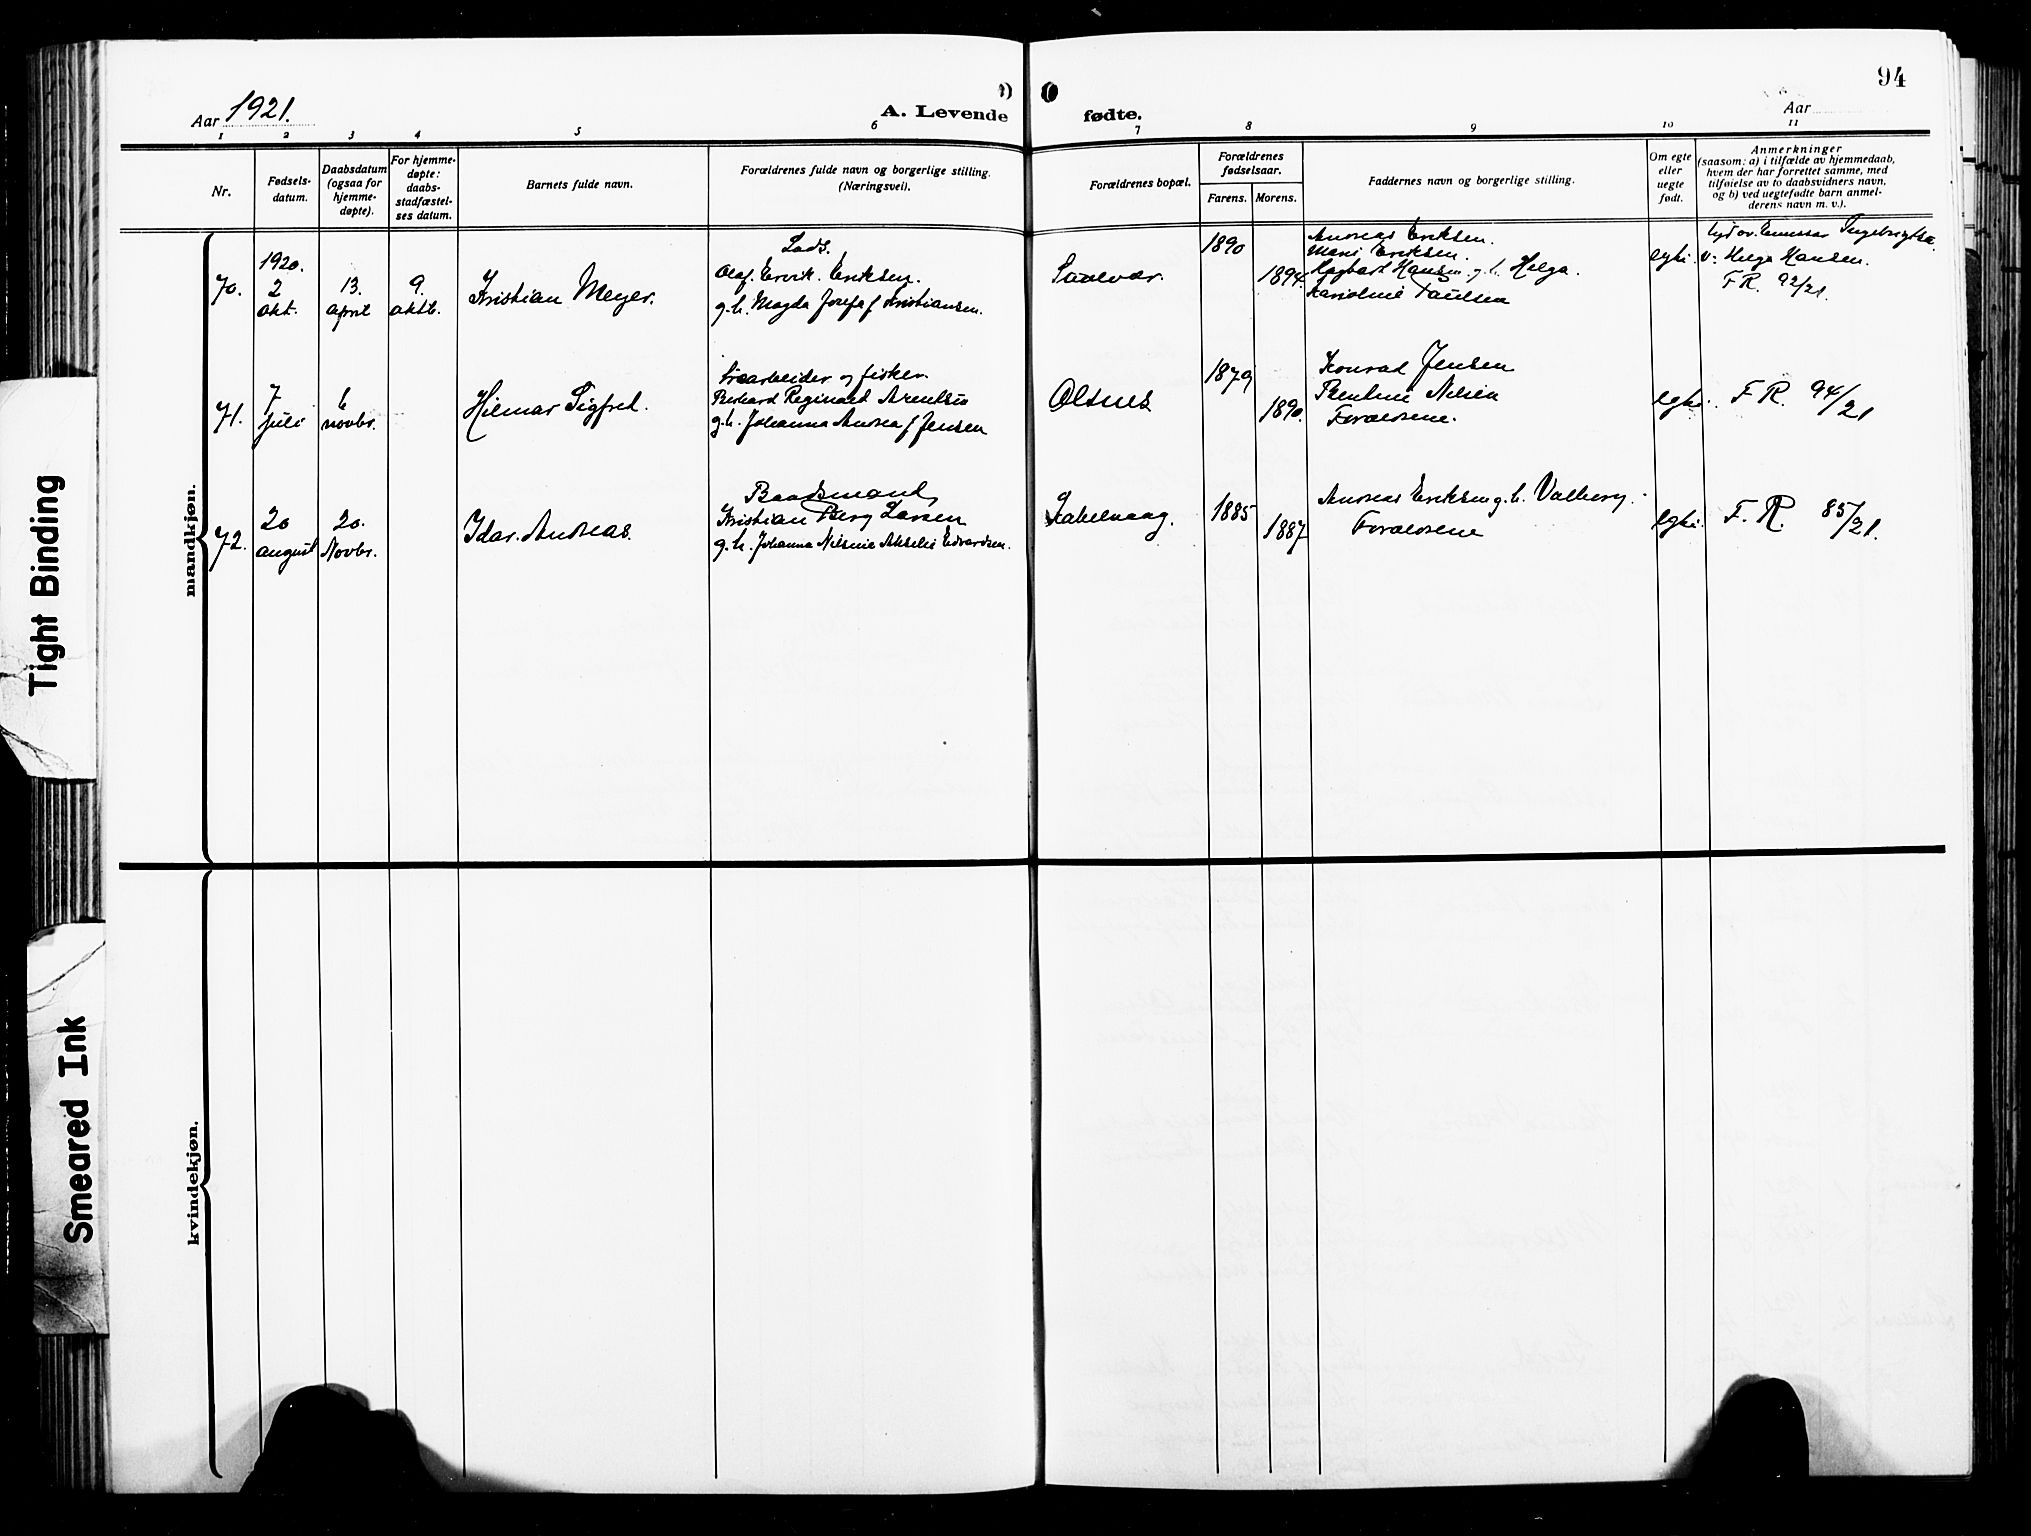 94
Aar 1921.
A. Levende
fødte.
Aar
1 2 3 4 5 6 7 8 9 10 11
Nr.
Fødsels-
datum.
Daabsdatum
(ogsaa for
hjemme-
døpte).
For hjemme-
døpte:
daabs-
stadfæstel-
ses datum.
Barnets fulde navn.
Forældrenes fulde navn og borgerlige stilling.
(Næringsvei).
Forældrenes bopæl.
Forældrenes
fødselsaar.
Farens. Morens.
Faddernes navn og borgerlige stilling.
Om egte
eller
uegte
født.
Anmerkninger
(saasom: a) i tilfælde av hjemmedaab,
hvem der har forrettet samme, med
tilføielse av to daabsvidners navn,
og b) ved uegtefødte barn anmel-
derens navn m. v.).
mandkjøn.
70.
1920.
2
okt.
13.
april
9.
oktb.
Kristian Meyer.
Lods.
Olaf Ervik Eriksen.
g.h. Magda Josefa f Kristiansen.
1890
1894.
Andreas Eriksen.
Marie Eriksen.
Hagbart Hansen g.h. Helga.
Karoline Paulsen
egte.
v: Helga Hansen.
F R. 92/21.
71.
7
juli
6
novbr.
Hilmar Sigfred.
og fisker.
Berhard Reginald Arentsen
g.h. Johanna Andrea f Jensen
Olsnes
1879
1890.
Konrad Jensen
Bentine Nilsen
Forældrene.
egte.
F R. 94/21
72.
20
august
20.
Novbr.
Idar Andreas.
Baadsmand
Kristian Berg Larsen
g.h. Johanna Nilsine Akselie Edvardsen.
Kabelvaag.
1885
1887
Andreas Eriksen g.h. Valborg.
Forældrene
egte.
F. R. 85/21.
kvindekjøn.
Tight Binding
Smeared Ink